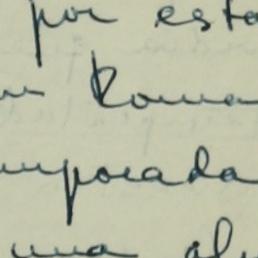 por esta
en Roma
mporada
una al